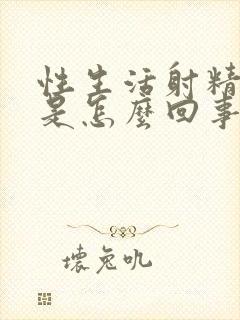 性生活射精
是怎麼回事
壞兔吪